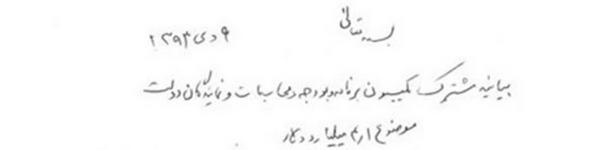 بسمه تعالی
۹ دی ۱۳۹۳
بیانیه مشترک کمیسیون برنامه و بودجه و محاسبات و نمایندگان دولت
موضوع ۴/۱ میلیارد دلار